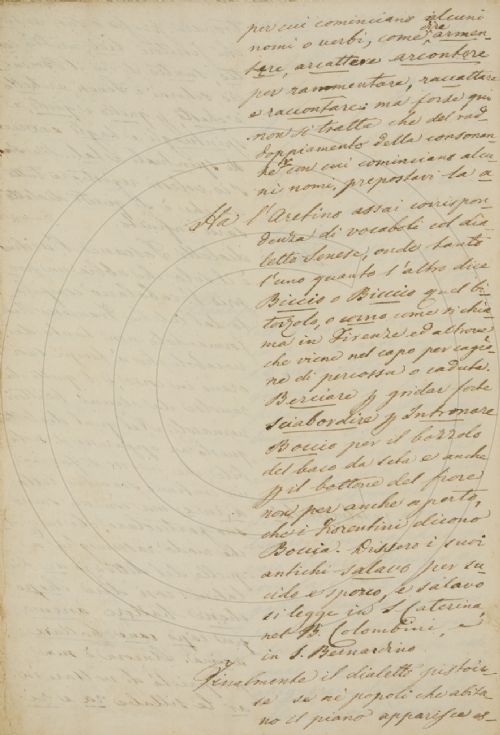 per cui cominciano alcuni
nomi o verbi, come, armen-
tare, arcattare arcontare
per rammentare, raccattare
e raccontare: ma forse qui
non si tratta che del rad
doppiamento della consonan
te con cui cominciano alcu
ni nomi, prepostavi la a
Ha l'Aretino assai corrispon
denza di vocaboli col dia
letto Senese, onde tanto
l'uno quanto l'altro dice
Biccio o Biccio quel bi
torzolo, o corno come si chia
ma in Firenze ed altrove
che viene nel capo per cagio
ne di percossa o caduta.
Berciare p gridar forte
sciabordire p Intronare
Boccio per il bozzolo
del baco da seta e anche
p il bottone del fiore
non per anche aperto,
che i Fiorentini dicono
Boccia. Dissero i suoi
antichi salavo per su
cido e sporco, e salavo
si legge in S. Caterina,
nel B. Colombini, e
in S. Bernardino
Finalmente il dialetto pistoie
se se ni popoli che abita
no il piano apparisce es-